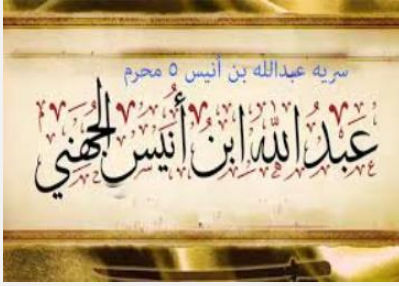 سريه عبدالله بن أنيس ٥ محرم
عَبْدُ اللهِ ابنُ أُنَيْسٍ الجُهَنِي